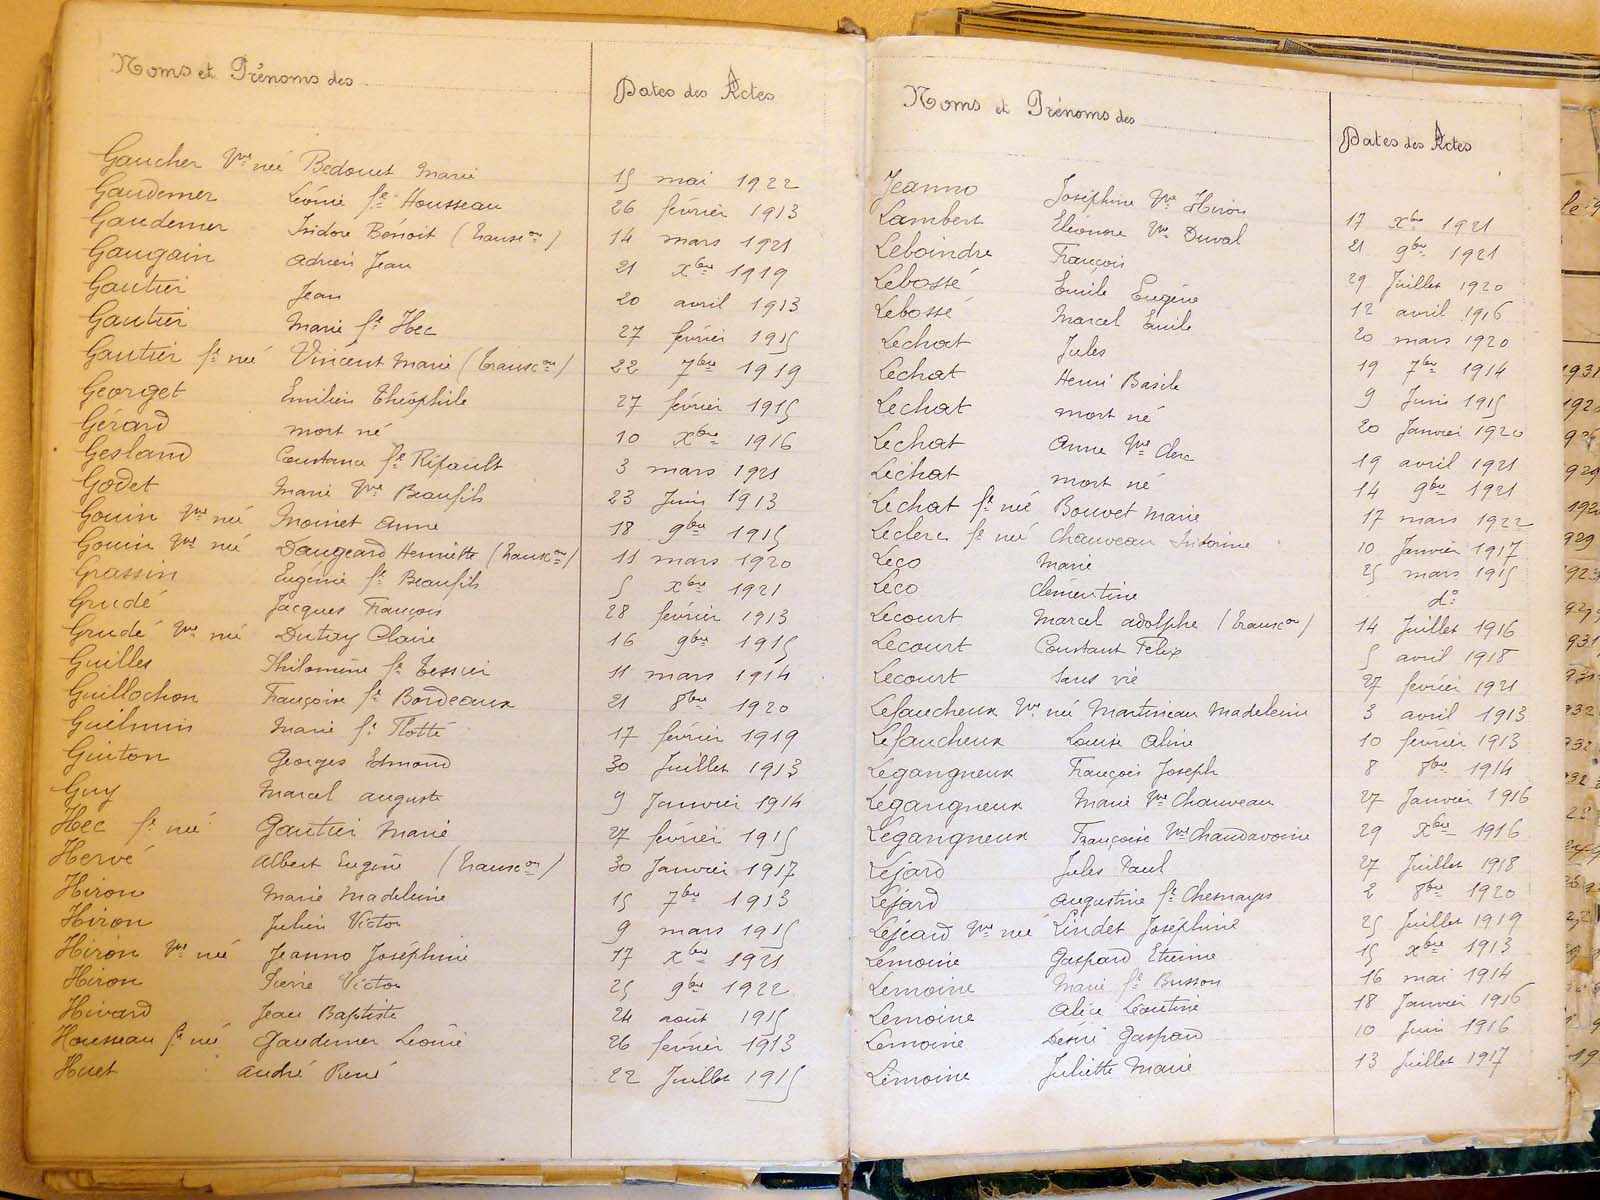 Noms et Prénoms des Dates des Actes
Gaucher Vve née Bedouet Marie 15 mai 1922
Gaudemer Léonie fe Housseau 26 février 1913
Gaudemer Isidore Bénoit (transcon) 14 mars 1921
Gaugain Adrien Jean 21 xbre 1919
Gautier Jean 20 avril 1913
Gautier Marie fe Hec 27 février 1915
Gautier fe née Vincent Marie (transcon) 22 7bre 1919
Georget Emilien Théophile 27 février 1915
Gérard mort né 10 xbre 1916
Gesland Constance fe Ripault 3 mars 1921
Godet Marie Vve Beaufils 23 Juin 1913
Gouin Vve née Moinet Anne 18 9bre 1915
Gouin Vve née Daugeard Henriette (transcon) 11 mars 1920
Grassin Eugénie fe Beaufils 5 xbre 1921
Grudé Jacques François 28 février 1913
Grudé Vve née Dutay Claire 16 9bre 1915
Guilles Philomène fe Tessier 11 mars 1914
Guillochon Françoise fe Bordeaux 21 8bre 1920
Guilmin Marie fe Plotté 17 février 1919
Guiton Georges Edmond 30 Juillet 1913
Guy Marcel Auguste 9 Janvier 1914
Hec fe née Gautier Marie 27 février 1915
Hervé Albert Eugène (transcon) 30 Janvier 1917
Hiron Marie Madeleine 15 7bre 1913
Hiron Julien Victor 9 mars 1915
Hiron Vve née Jeanno Joséphine 17 xbre 1921
Hiron Pierre Victor 25 9bre 1922
Hivard Jean Baptiste 24 août 1915
Housseau fe née Gaudemer Léonie 26 février 1913
Huet André René 22 Juillet 1915
Noms et Prénoms des Dates des Actes
Jeanno Joséphine Vve Hiron 17 xbre 1921
Lambert Eléonore Vve Duval 21 9bre 1921
Leboindre François 29 Juillet 1920
Lebossé Emile Eugène 12 avril 1916
Lebossé Marcel Emile 20 mars 1920
Lechat Jules 19 7bre 1914
Lechat Henri Basile 9 Juin 1915
Lechat mort né 20 Janvier 1920
Lechat Anne Vve Clerc 19 avril 1921
Lechat mort né 14 9bre 1921
Lechat fe née Bouvet Marie 17 mars 1922
Leclerc fe née Chauveau Antoinine 10 Janvier 1917
Leco Marie 25 mars 1915
Leco Clémentine do
Lecourt Marcel Adolphe (transcon) 14 Juillet 1916
Lecourt Constant Felix 5 avril 1918
Lecourt sans vie 27 février 1921
Lefaucheux Vve née Martineau Madeleine 3 avril 1913
Lefaucheux Louise Aline 10 février 1913
Legangneux François Joseph 8 8bre 1914
Legangneux Marie Vve Chauveau 27 Janvier 1916
Legangneux Françoise Vve Chaudavoine 29 xbre 1916
Lejard Jules Paul 27 Juillet 1918
Lejard Augustine fe Chesnayes 2 8bre 1920
Lejeard Vve née Lindet Joséphine 25 Juillet 1919
Lemoine Gaspard Etienne 15 xbre 1913
Lemoine Marie fe Busson 16 mai 1914
Lemoine Alice Léontine 18 Janvier 1916
Lemoine Désiré Gaspard 10 Juin 1916
Lemoine Juliette Marie 13 Juillet 1917